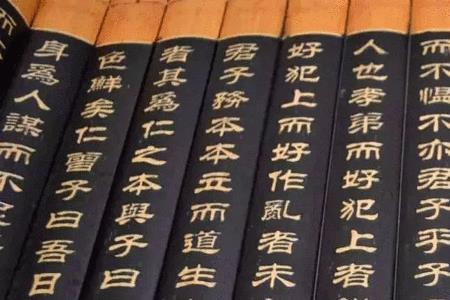 而不慍不亦君子乎子
人也孝弟而好犯上者
好犯上而好作亂者未
君子務本本立而道生
者其爲仁之本與子曰
色鮮矣仁曾子曰吾日
身爲人謀而不